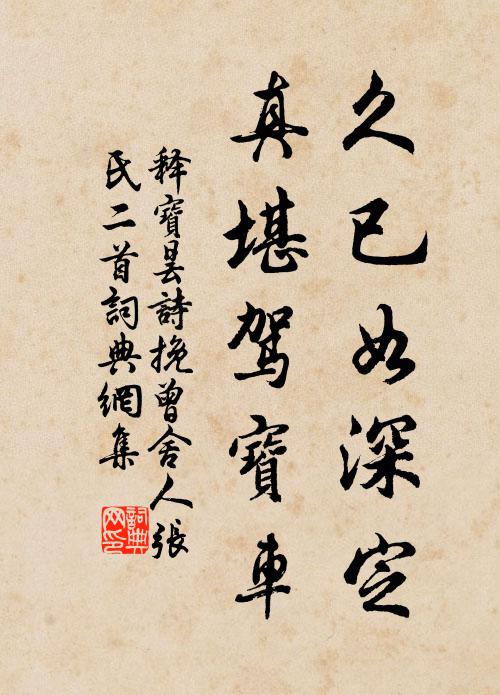 久已如深定
真堪駕寶車
释寶曇詩挽曾舍人張
氏二首詞典網集
詞典
网印